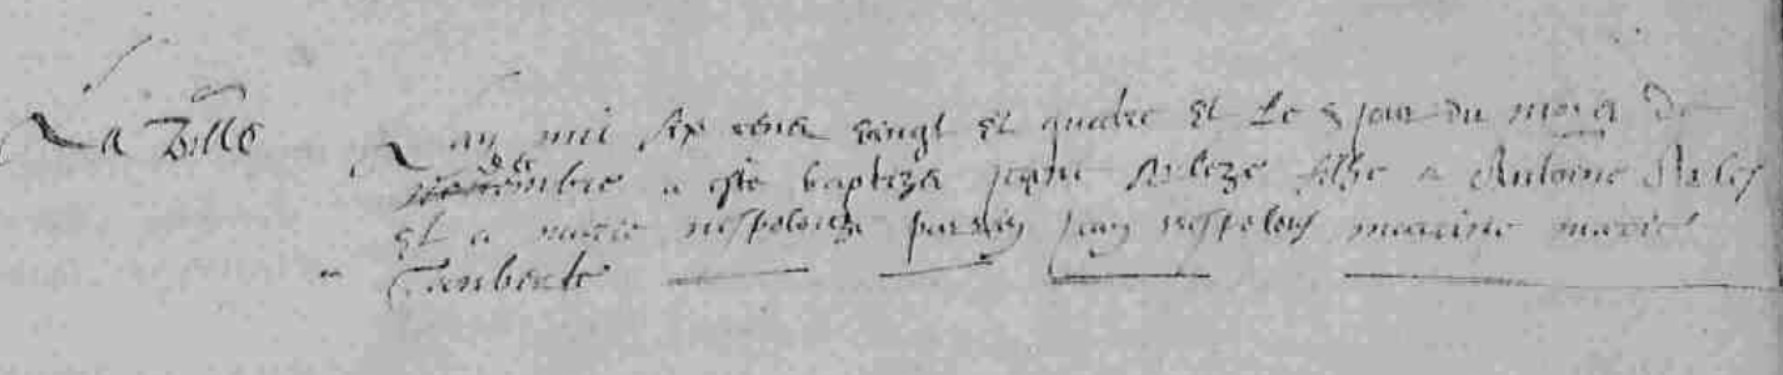 La Ville
Lan mil six cens vingt et quatre et le 8 jour du moys de
decembre a este baptiza jeane filhe a Antoine
et a marie nespolouze parrin jean nespolous marine marie
Jauberte